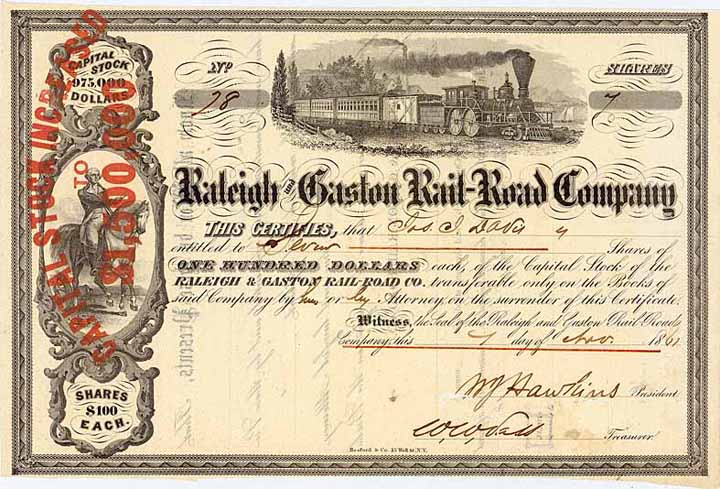 CAPITAL STOCK
$975,000
DOLLARS
CAPITAL STOCK INCREASED
TO
SHARES
$100
EACH.
No
28
SHARES
7
Raleigh and Gaston Rail-Road Company
THIS CERTIFIES, that Jos. J. Davis is
entitled to Seven Shares of
ONE HUNDRED DOLLARS each, of the Capital Stock of the
RALEIGH & GASTON RAIL-ROAD CO. transferable only on the Books of
said Company by him or by Attorney on the surrender of this Certificate.
Witness, the Seal of the Raleigh and Gaston Rail-Road
Company, this 7 day of Nov. 1861
W J Hawkins President
W. W. Vass
Treasurer.